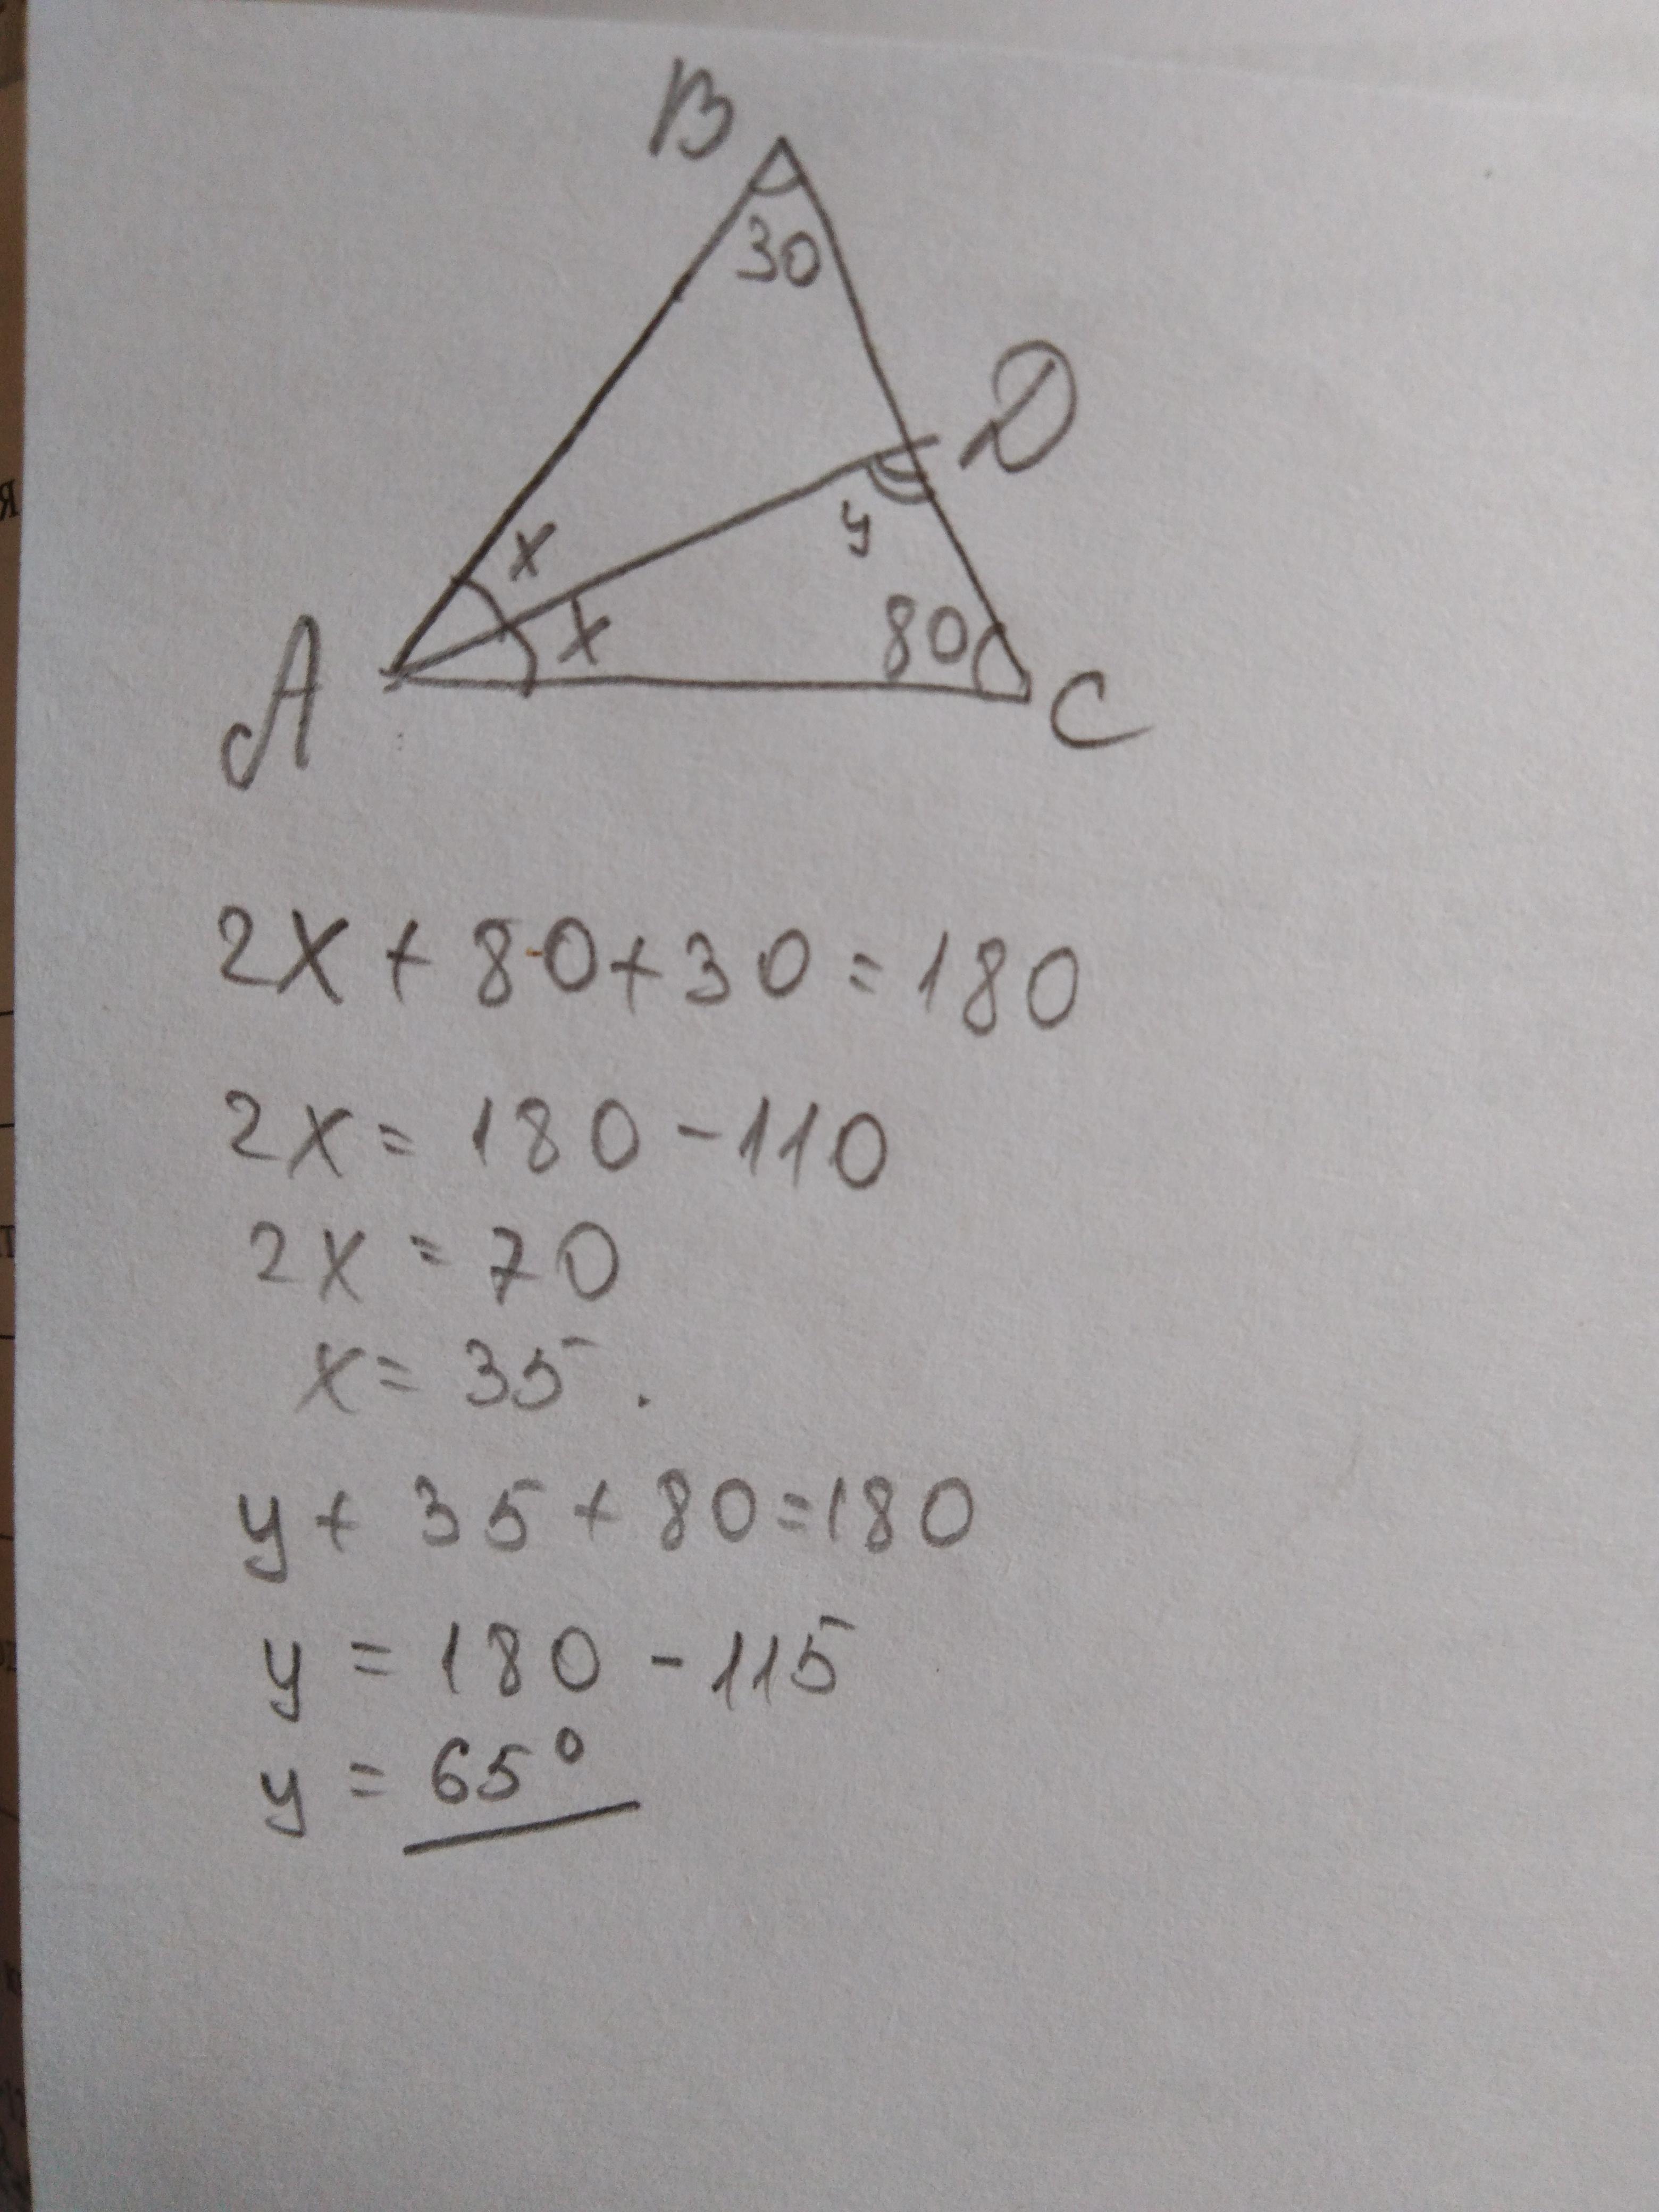 B
30
D
x
y
x
80
A
C
2x + 80 + 30 = 180
2x = 180 - 110
2x = 70
x = 35.
y + 35 + 80 = 180
y = 180 - 115
y = 65°